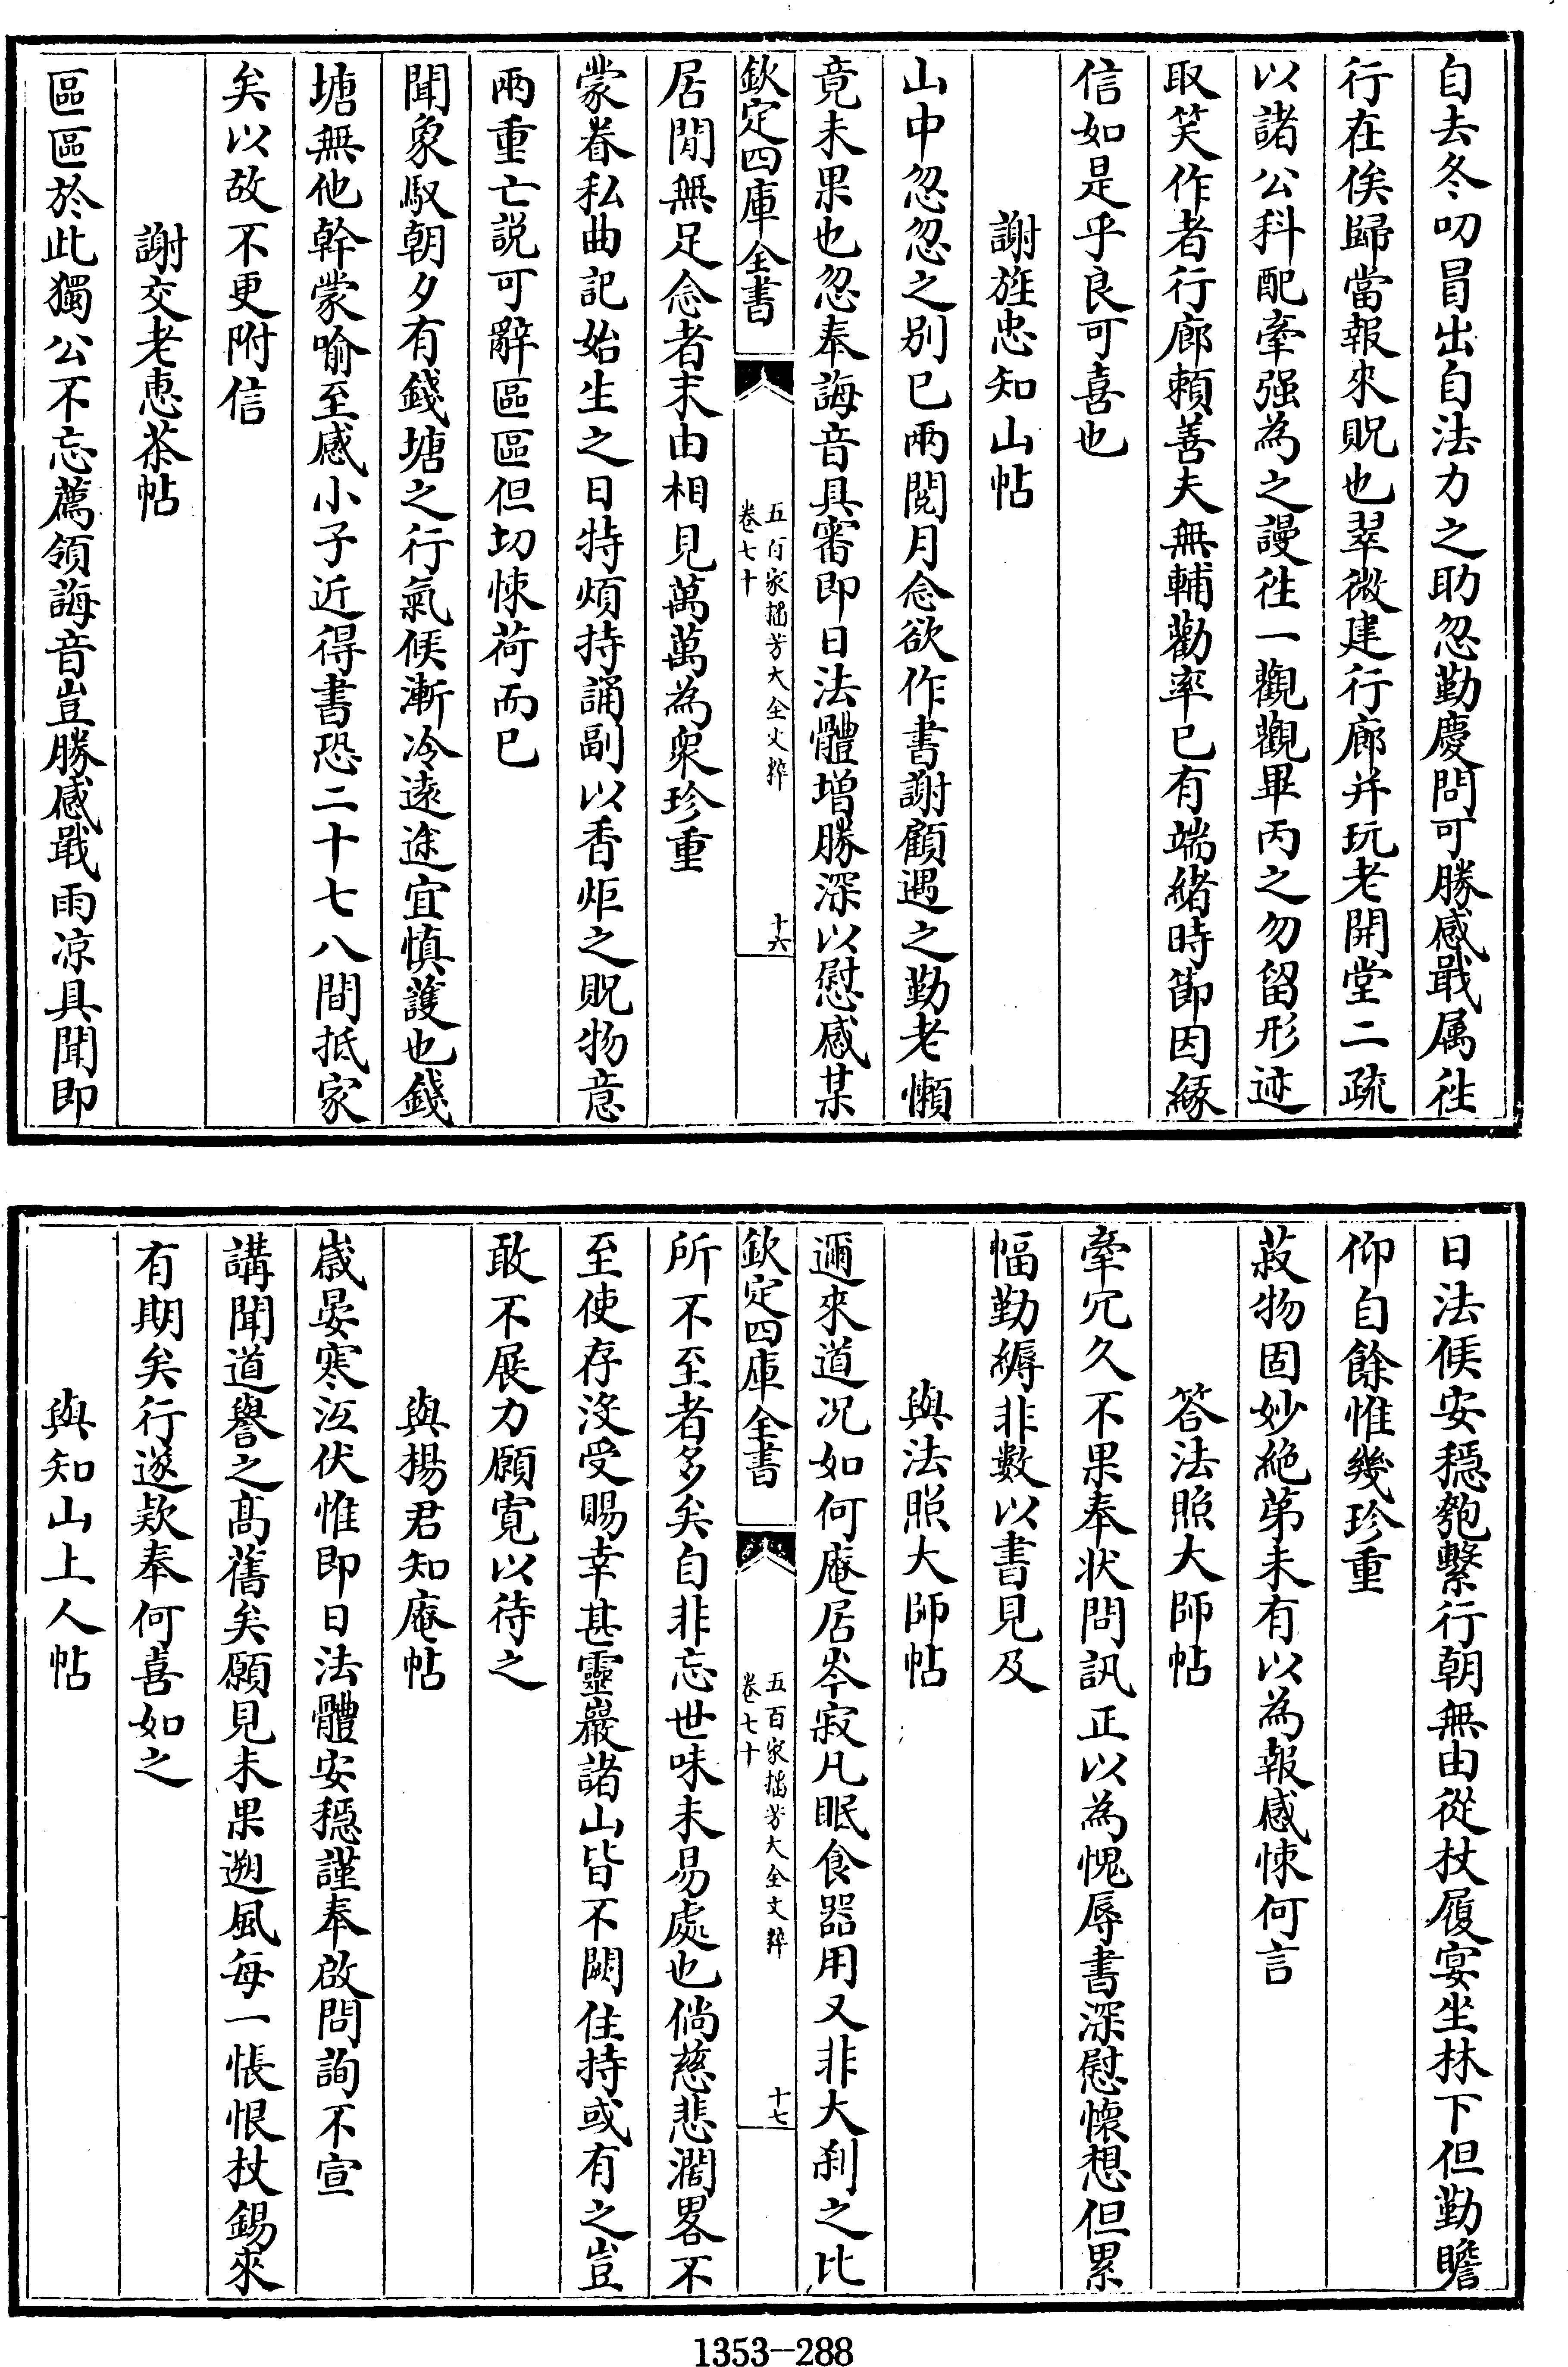 自去冬叨冒出自法力之助忽勤慶問可勝感戢属徃
行在俟歸當報來貺也翠微建行廊并玩老開堂二疏
以諸公科配牽强為之謾徃一觀觀畢丙之勿留形迹
取笑作者行廊頼善夫無輔勸率已有端緒時節因緣
信如是乎良可喜也
謝旌忠知山帖
山中忽忽之别已兩閲月念欲作書謝顧遇之勤老懶
竟未果也忽奉誨音具審即日法體增勝深以慰感某
欽定四庫全書
五百家播芳大全文粹
卷七十
十六
居閒無足念者末由相見萬萬為衆珍重
蒙眷私曲記始生之日特煩持誦副以香炬之貺物意
兩重亡説可辭區區但切悚荷而已
聞象馭朝夕有錢塘之行氣候漸冷逺途宜慎護也錢
塘無他幹蒙喻至感小子近得書恐二十七八間抵家
矣以故不更附信
謝交老惠茶帖
區區於此獨公不忘薦領誨音豈勝感戢雨凉具聞即
日法候安穩匏繫行朝無由從杖履宴坐林下但勤瞻
仰自餘惟幾珍重
菽物固妙絶第未有以為報感悚何言
答法照大師帖
牽冗久不果奉状問訊正以為愧辱書深慰懷想但累
幅勤縟非數以書見及
與法照大師帖
邇來道况如何庵居岑寂凡眠食器用又非大刹之比
欽定四庫全書
五百家播芳大全文粹
卷七十
十七
所不至者多矣自非忘世味未易處也倘慈悲濶畧不
至使存没受賜幸甚靈巖諸山皆不闕住持或有之豈
敢不展力願寛以待之
與楊君知庵帖
嵗晏寒沍伏惟即日法體安穩謹奉啟問詢不宣
講聞道譽之髙舊矣願見未果遡風每一悵恨杖錫來
有期矣行遂欵奉何喜如之
與知山上人帖
1353-288